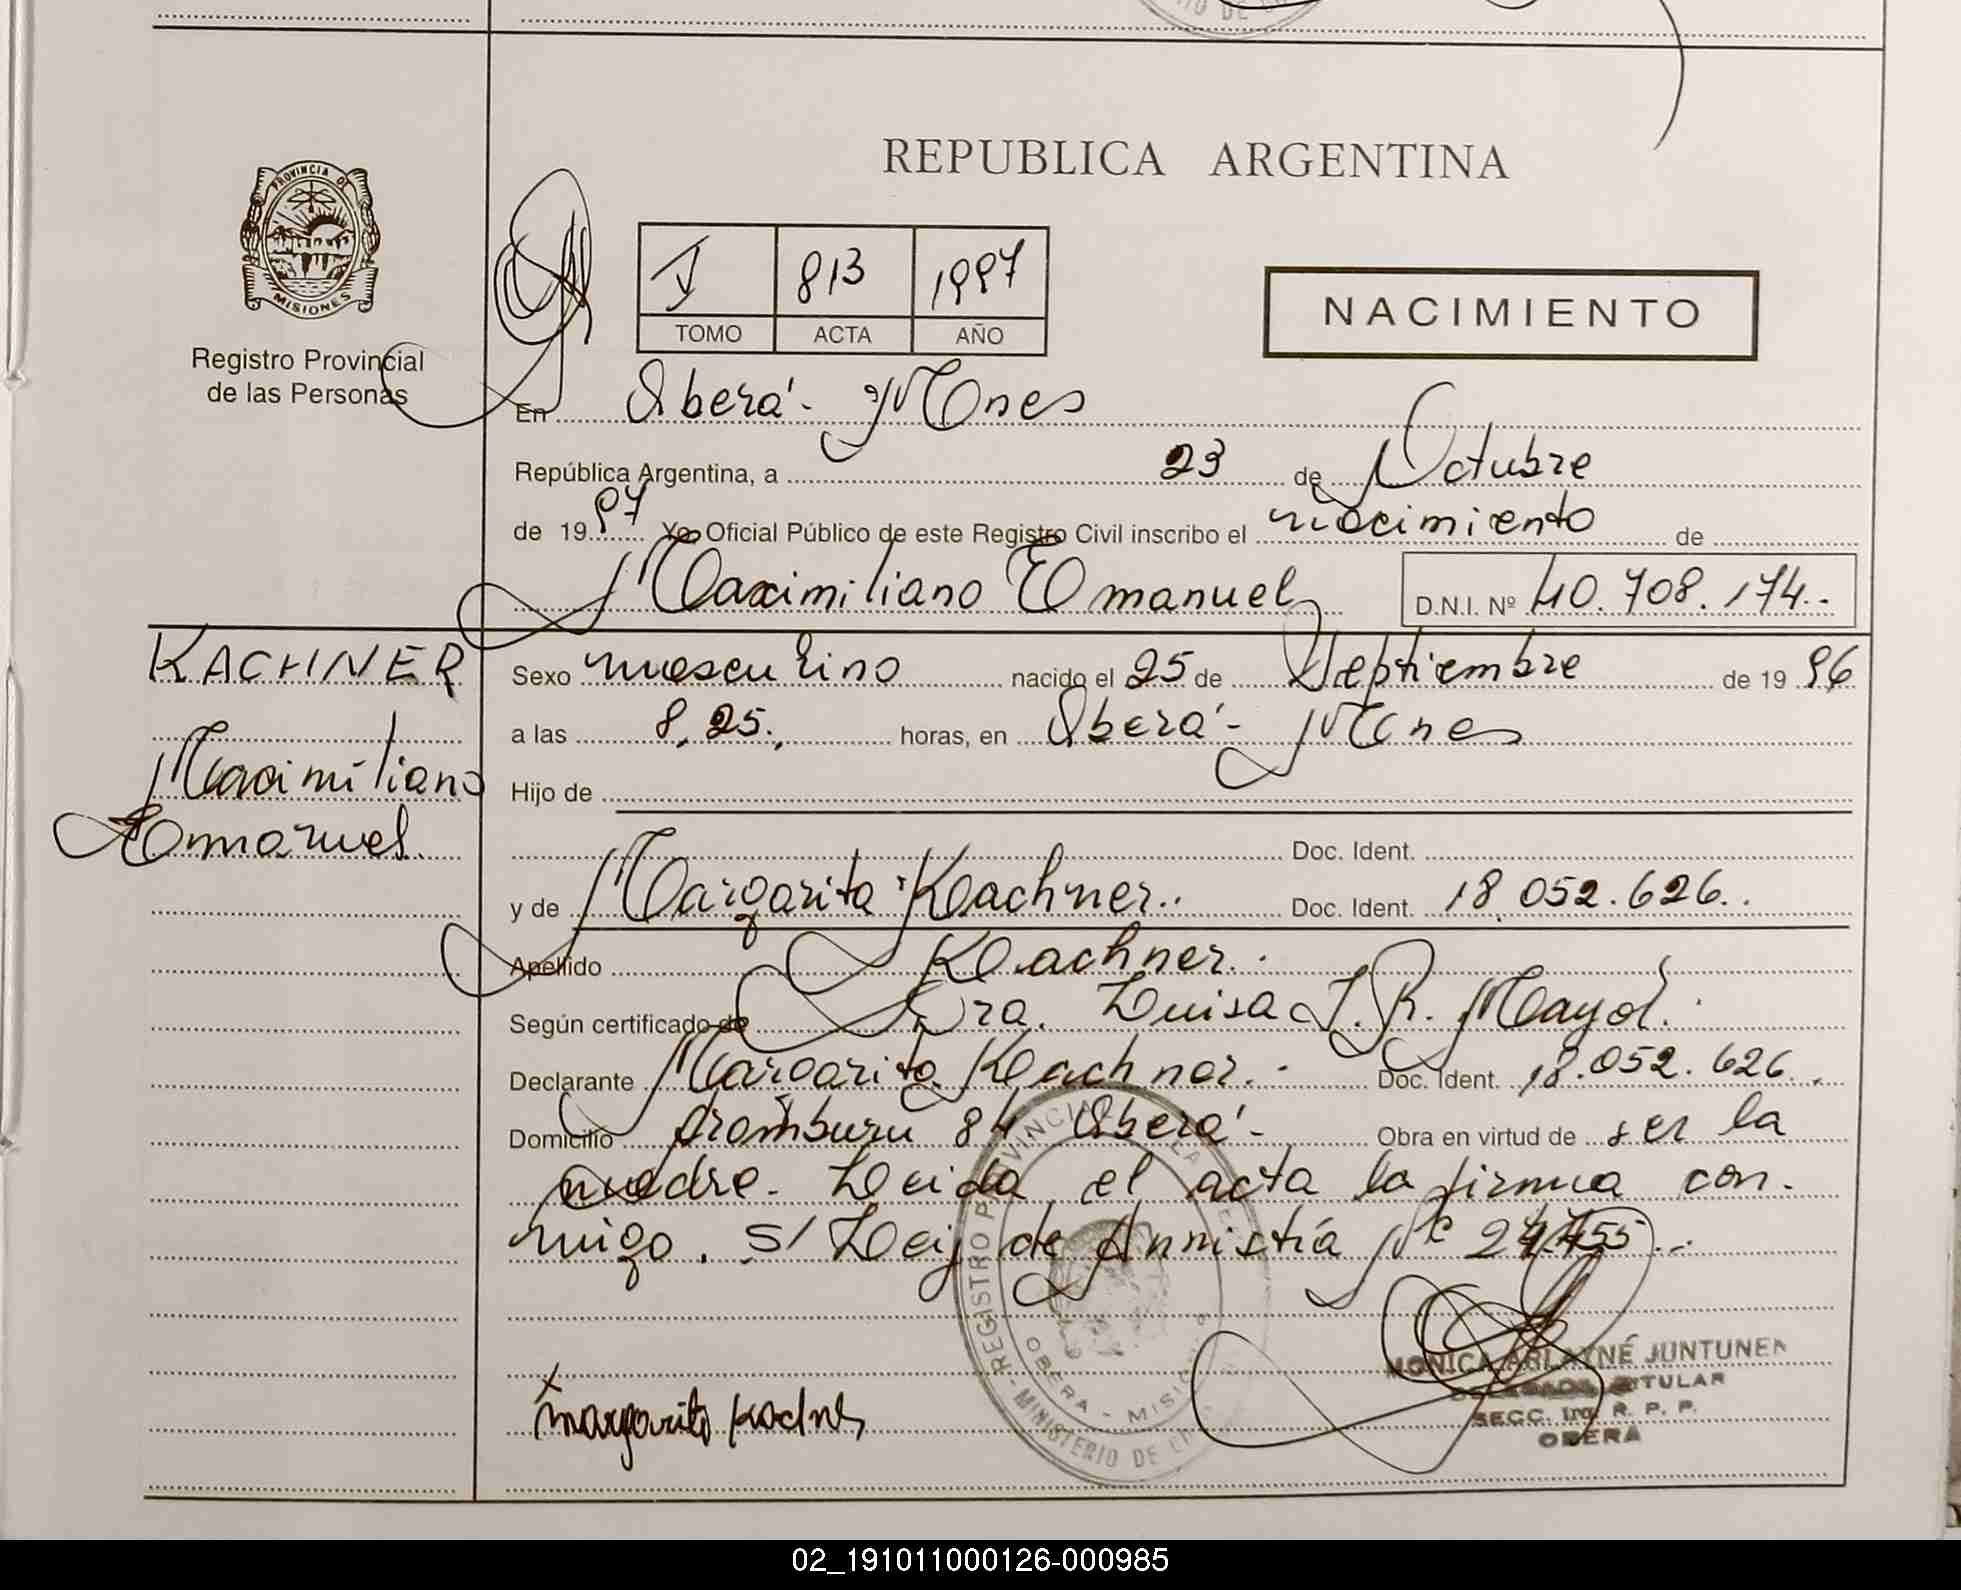 REPUBLICA ARGENTINA
PROVINCIA DE
MISIONES
Registro Provincial
de las Personas
I 813 1997
TOMO ACTA AÑO
NACIMIENTO
En Oberá - Mnes
República Argentina, a 23 de Octubre
de 1997 Yo, Oficial Público de este Registro Civil inscribo el nacimiento de
Maximiliano Emanuel D.N.I. Nº 40.708.174.-
KACHNER
Maximiliano
Emanuel.
Sexo masculino nacido el 25 de Septiembre de 1996
a las 8,25., horas, en Oberá - Mnes
Hijo de
Doc. Ident.
y de Margarita Kachner.. Doc. Ident. 18.052.626..
Apellido Kachner..
Según certificado de Dra. Luisa I. R. Mayol.
Declarante Margarita Kachner.- Doc. Ident. 18.052.626..
Domicilio 84 Oberá - Obra en virtud de ser la
madre. Leida el acta la firma con-
migo. S/ Ley de Amnistía Nº 24.755..-
REGISTRO PROVINCIAL DE LAS
OBERA - MISIONES
MINISTERIO DE
MONICA ARLAYNÉ JUNTUNEN
TITULAR
SECC. 1ra. R. P. P.
OBERA
x
Margarita Kachner
02_191011000126-000985